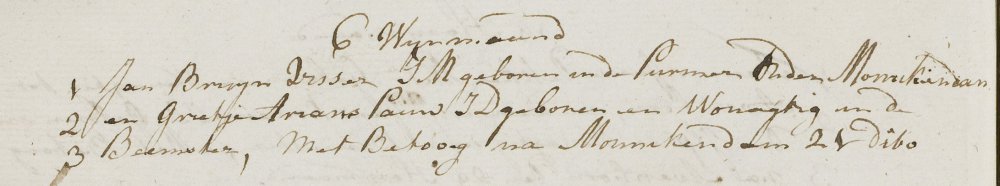 6 Wynmaand
1 Jan Bruyn Visser JM geboren in de Purmer Onder Monnikendam
2 en Grietje Arians Pauw JD geboren en Wonagtig in de
3 Beemster, Met Betoog na Monnikendam 21 dito